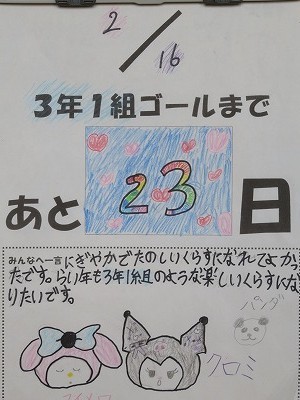 2/16
3年1組ゴールまで
あと 23 日
みんなへ一言 にぎやかでたのしいくらすになれてよか
たです。らい年も3年1組のような楽しいくらすにな
りたいです。
パンダ
クロミ
マイメロ